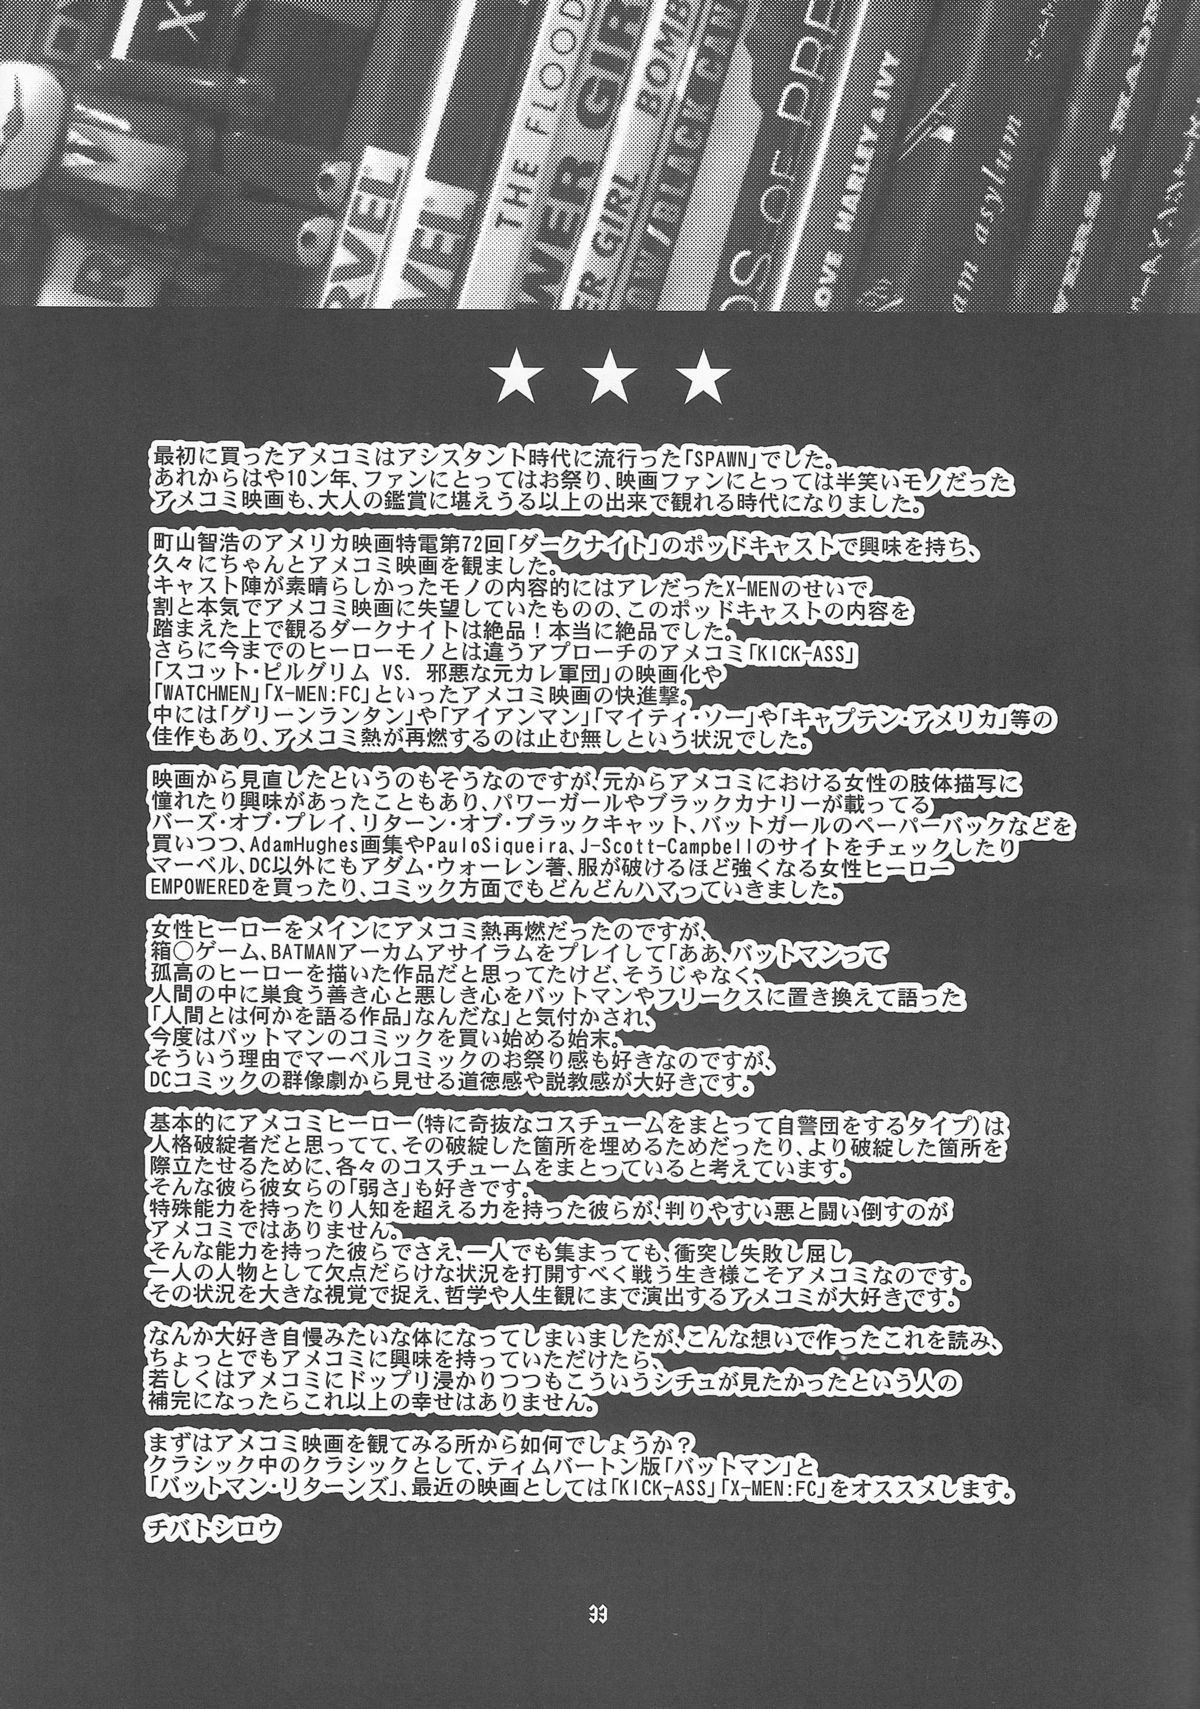 MARVEL
THE FLOOD
POWER GIRL
POWER GIRL BOMB
/BLACK CAN
OF PRE
LOVE HARLEY & IVY
asylum
★ ★ ★
最初に買ったアメコミはアシスタント時代に流行った「SPAWN」でした。
あれからはや10ン年、ファンにとってはお祭り、映画ファンにとっては半笑いモノだった
アメコミ映画も、大人の鑑賞に堪えうる以上の出来で観れる時代になりました。
町山智浩のアメリカ映画特電第72回「ダークナイト」のポッドキャストで興味を持ち、
久々にちゃんとアメコミ映画を観ました。
キャスト陣が素晴らしかったモノの内容的にはアレだったX-MENのせいで
割と本気でアメコミ映画に失望していたものの、このポッドキャストの内容を
踏まえた上で観るダークナイトは絶品！本当に絶品でした。
さらに今までのヒーローモノとは違うアプローチのアメコミ「KICK-ASS」
「スコット・ピルグリム VS. 邪悪な元カレ軍団」の映画化や
「WATCHMEN」「X-MEN:FC」といったアメコミ映画の快進撃。
中には「グリーンランタン」や「アイアンマン」「マイティ・ソー」や「キャプテン・アメリカ」等の
佳作もあり、アメコミ熱が再燃するのは止む無しという状況でした。
映画から見直したというのもそうなのですが、元からアメコミにおける女性の肢体描写に
憧れたり興味があったこともあり、パワーガールやブラックカナリーが載ってる
バーズ・オブ・プレイ、リターン・オブ・ブラックキャット、バットガールのペーパーバックなどを
買いつつ、AdamHughes画集やPauloSiqueira、J-Scott-Campbellのサイトをチェックしたり
マーベル、DC以外にもアダム・ウォーレン著、服が破けるほど強くなる女性ヒーロー
EMPOWEREDを買ったり、コミック方面でもどんどんハマっていきました。
女性ヒーローをメインにアメコミ熱再燃だったのですが、
箱○ゲーム、BATMANアーカムアサイラムをプレイして「ああ、バットマンって
孤高のヒーローを描いた作品だと思ってたけど、そうじゃなく、
人間の中に巣食う善き心と悪しき心をバットマンやフリークスに置き換えて語った
「人間とは何かを語る作品」なんだな」と気付かされ、
今度はバットマンのコミックを買い始める始末。
そういう理由でマーベルコミックのお祭り感も好きなのですが、
DCコミックの群像劇から見せる道徳感や説教感が大好きです。
基本的にアメコミヒーロー(特に奇抜なコスチュームをまとって自警団をするタイプ)は
人格破綻者だと思ってて、その破綻した箇所を埋めるためだったり、より破綻した箇所を
際立たせるために、各々のコスチュームをまとっていると考えています。
そんな彼ら彼女らの「弱さ」も好きです。
特殊能力を持ったり人知を超える力を持った彼らが、判りやすい悪と闘い倒すのが
アメコミではありません。
そんな能力を持った彼らでさえ、一人でも集まっても、衝突し失敗し屈し
一人の人物として欠点だらけな状況を打開すべく戦う生き様こそアメコミなのです。
その状況を大きな視覚で捉え、哲学や人生観にまで演出するアメコミが大好きです。
なんか大好き自慢みたいな体になってしまいましたが、こんな想いで作ったこれを読み、
ちょっとでもアメコミに興味を持っていただけたら、
若しくはアメコミにドップリ浸かりつつもこういうシチュが見たかったという人の
補完になったらこれ以上の幸せはありません。
まずはアメコミ映画を観てみる所から如何でしょうか？
クラシック中のクラシックとして、ティムバートン版「バットマン」と
「バットマン・リターンズ」、最近の映画としては「KICK-ASS」「X-MEN:FC」をオススメします。
チバトシロウ
33